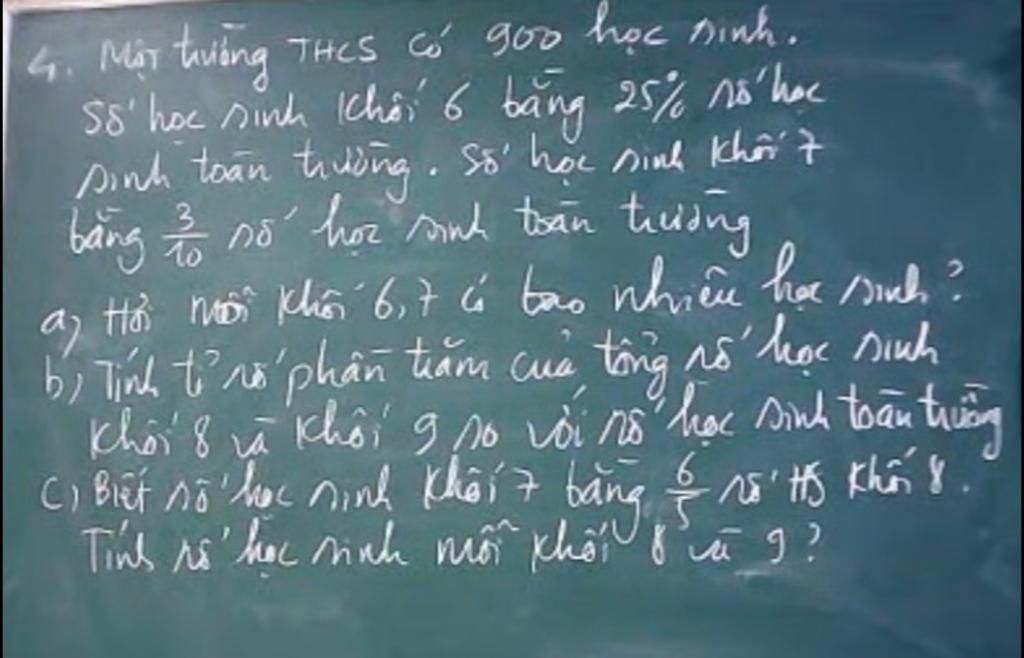 4. Một trường THCS có 900 học sinh.
Số học sinh khối 6 bằng 25% số học
sinh toàn trường. Số học sinh khối 7
bằng 3/10 số học sinh toàn trường
a) Hỏi mỗi khối 6,7 có bao nhiêu học sinh?
b) Tính tỉ số phần trăm của tổng số học sinh
khối 8 và khối 9 so với số học sinh toàn trường
c) Biết số học sinh khối 7 bằng 6/5 số HS khối 8.
Tính số học sinh mỗi khối 8 và 9?